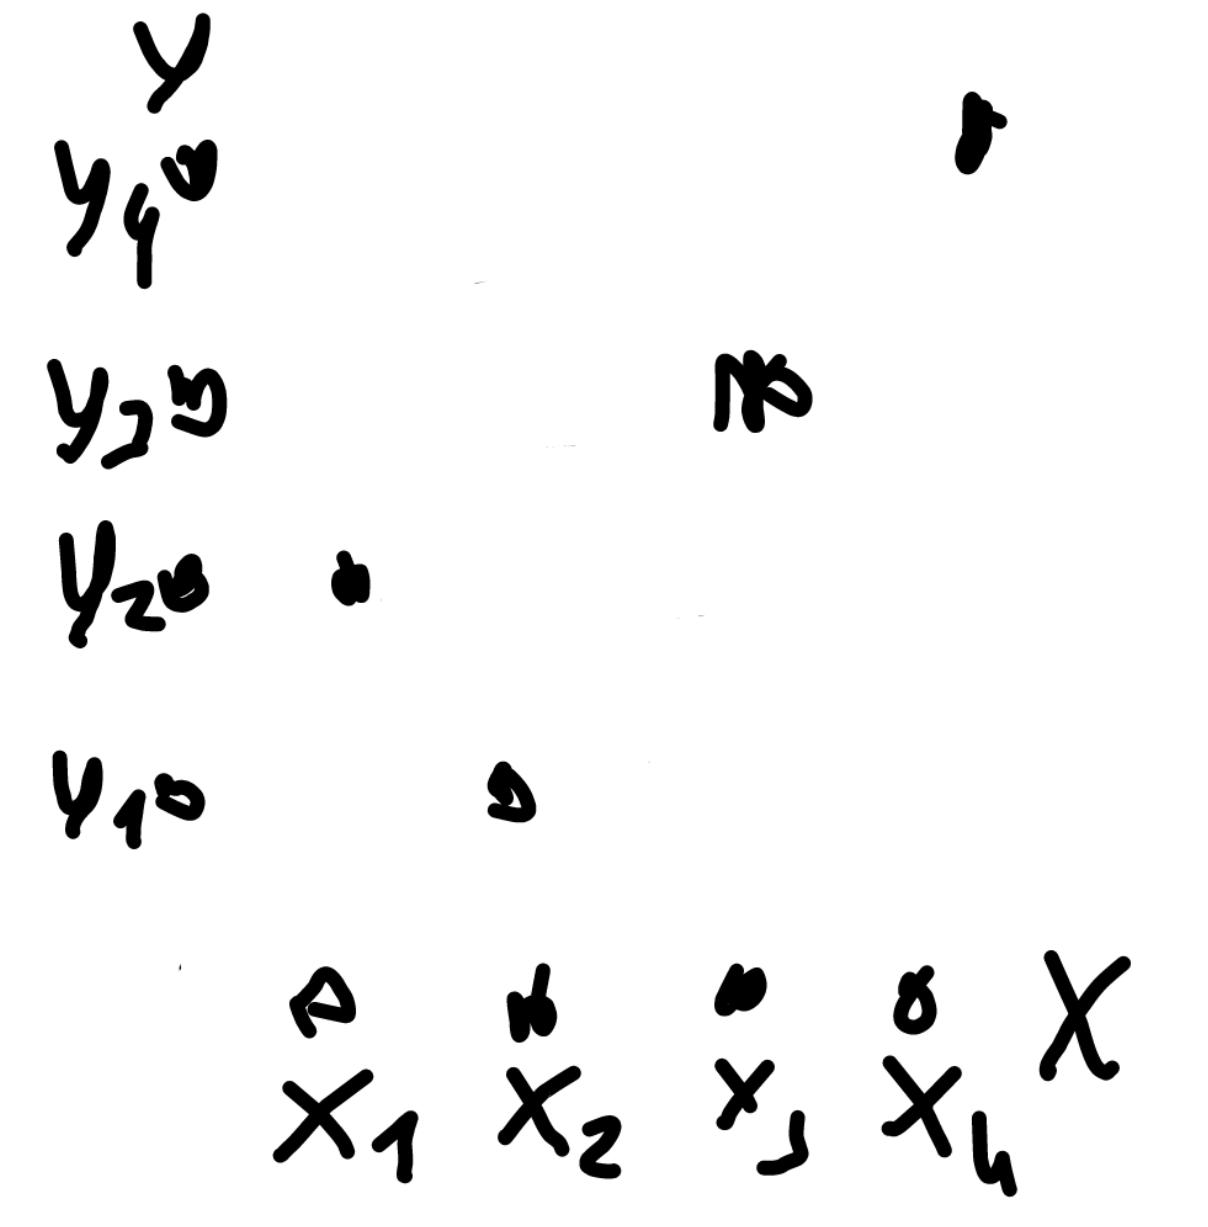 Y
Y4
Y3
Y2
Y1
X
X1 X2 X3 X4